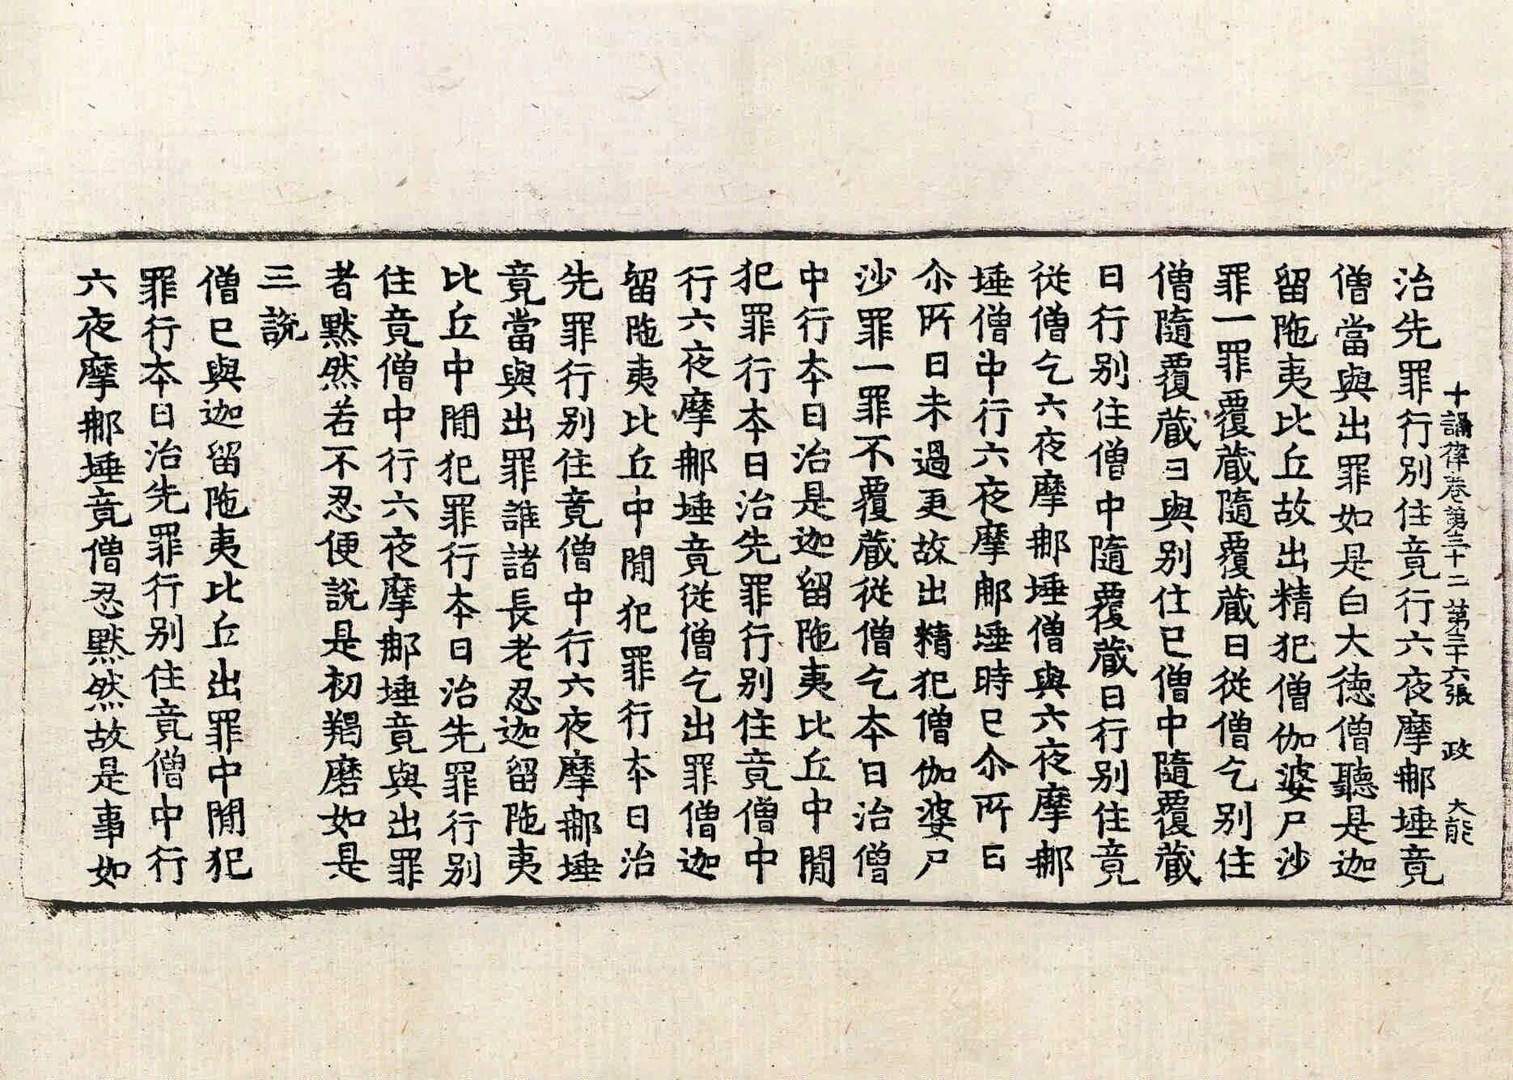 十誦律卷第三十二 第三十六張 政 大能
治先罪行別住竟行六夜摩那埵竟
僧當與出罪如是白大德僧聽是迦
留陁夷比丘故出精犯僧伽婆尸沙
罪一罪覆藏隨覆藏日從僧乞別住
僧隨覆藏日與別住已僧中隨覆藏
日行別住僧中隨覆藏日行別住竟
從僧乞六夜摩那埵僧與六夜摩那
埵僧中行六夜摩那埵時已尒所日
尒所日未過更故出精犯僧伽婆尸
沙罪一罪不覆藏從僧乞夲日治僧
中行夲日治是迦留陁夷比丘中閒
犯罪行夲日治先罪行別住竟僧中
行六夜摩那埵竟從僧乞出罪僧迦
留陁夷比丘中閒犯罪行夲日治
先罪行別住竟僧中行六夜摩那埵
竟當與出罪誰諸長老忍迦留陁夷
比丘中閒犯罪行夲日治先罪行別
住竟僧中行六夜摩那埵竟與出罪
者默然若不忍便說是初羯磨如是
三說
僧已與迦留陁夷比丘出罪中閒犯
罪行夲日治先罪行別住竟僧中行
六夜摩那埵竟僧忍默然故是事如